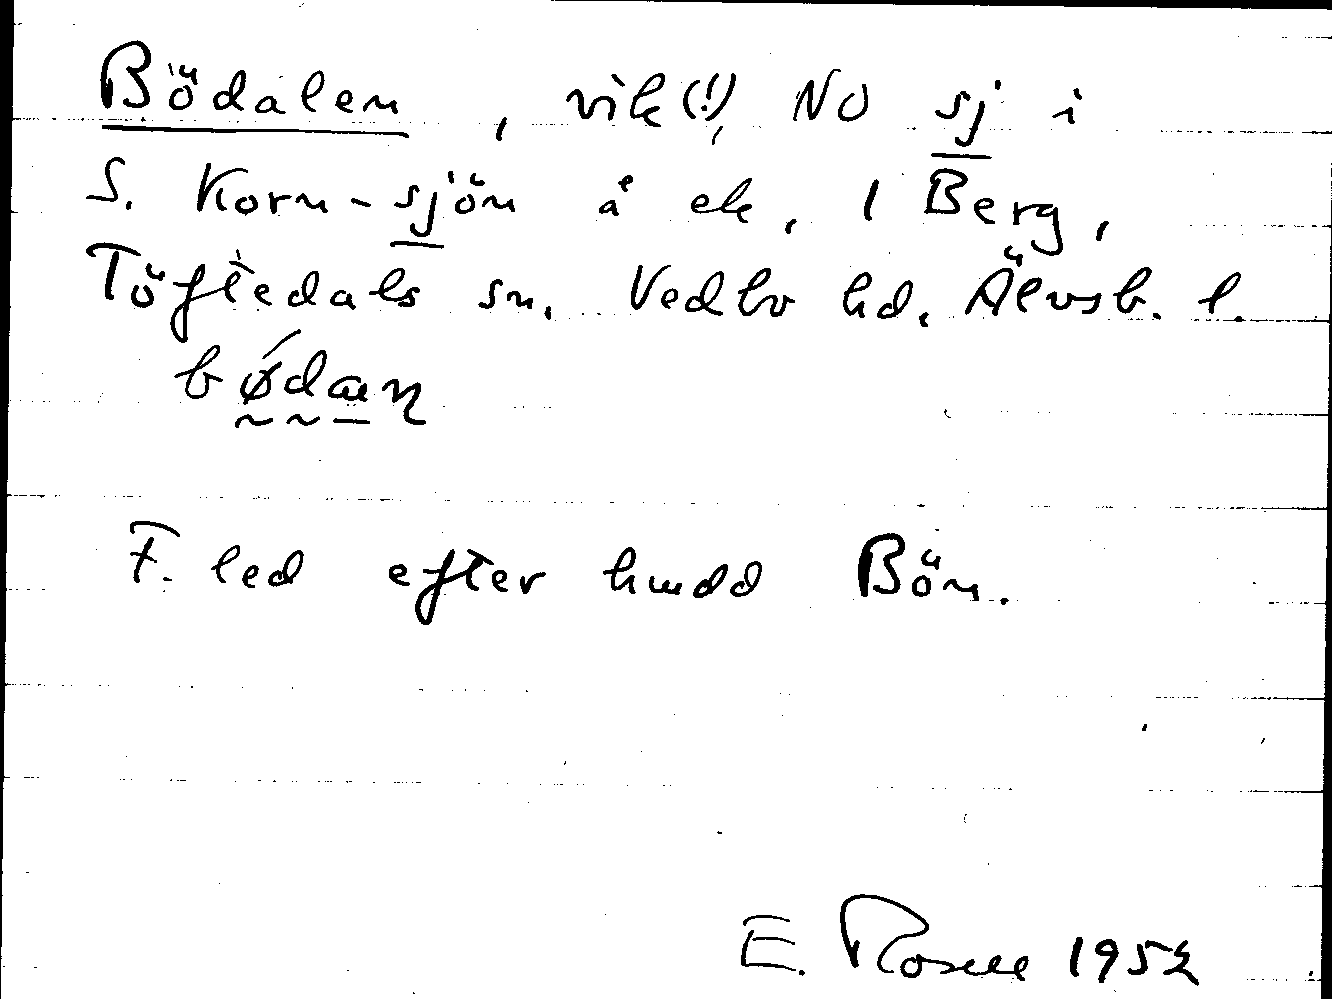 Bödalen, vik(!), NO sj i
S. Korn-sjön å ek. 1 Berg,
Töftedals sn. Vedbo hd. Älvsb. l.
bǿdæn
F. led efter hmdd Bön.
E. Rosell 1952